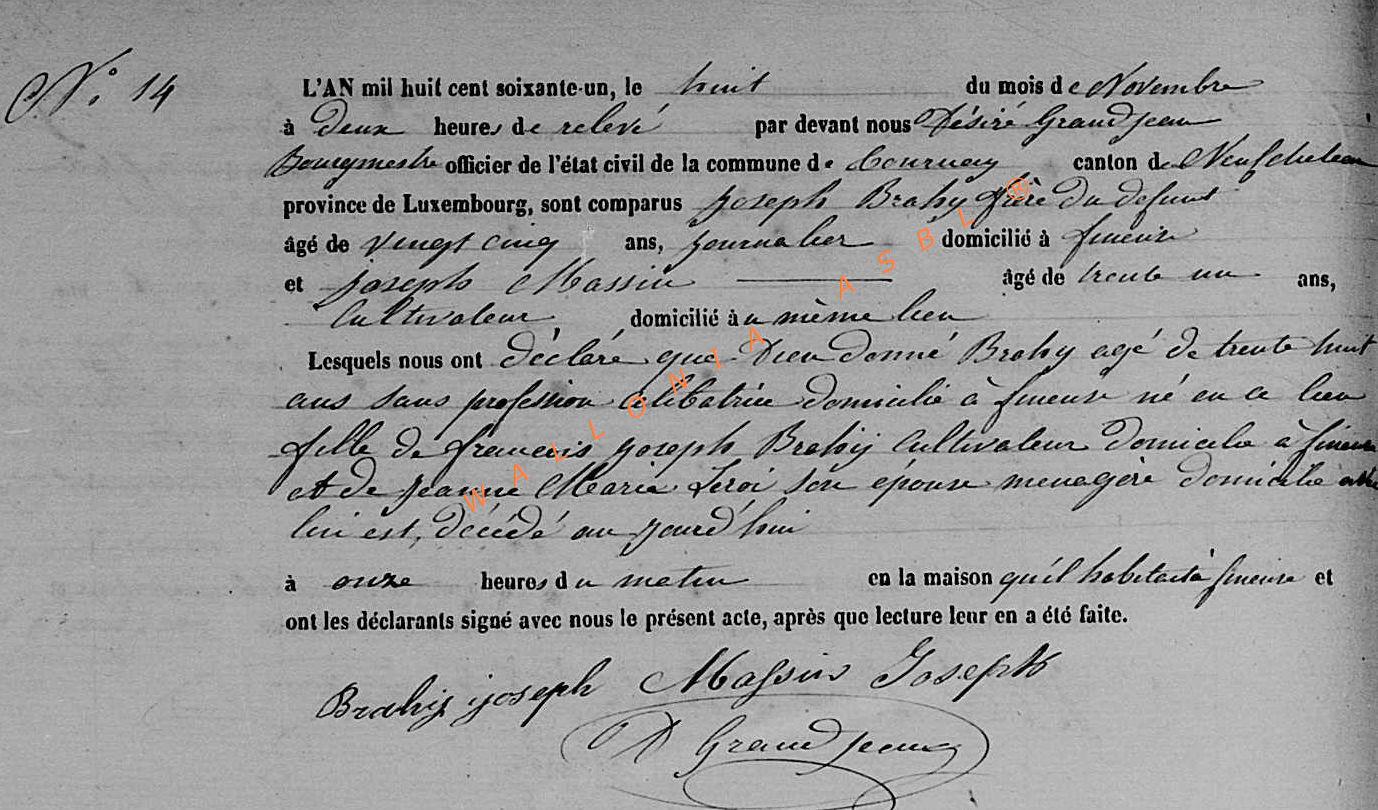 No. 14
L'AN mil huit cent soixante-un, le huit du mois de Novembre
à deux heures de relevé par devant nous Désiré Grandjean
Bourgmestre officier de l'état civil de la commune de Tournay canton de Neufchateau
province de Luxembourg, sont comparus Joseph Brahy frère du defunt
âgé de vingt cinq ans, journalier domicilié à fineuse
et Joseph Massin âgé de trente un ans,
Cultivateur domicilié à u même lieu
Lesquels nous ont déclaré que Dieudonné Brahy agé de trente huit
ans sans profession celibatrice domicilié à fineuse né en ce lieu
fille de francois joseph Brahy Cultivateur domicilie à fineuse
et de jeanne Marie Leroi son épouse menagère domicilie
lui est, décédé au jourd'hui
à onze heures du matin en la maison qu'il habitait à fineuse et
ont les déclarants signé avec nous le présent acte, après que lecture leur en a été faite.
Brahy joseph Massin Joseph
D Grandjean
WALLONIA ASBL ®